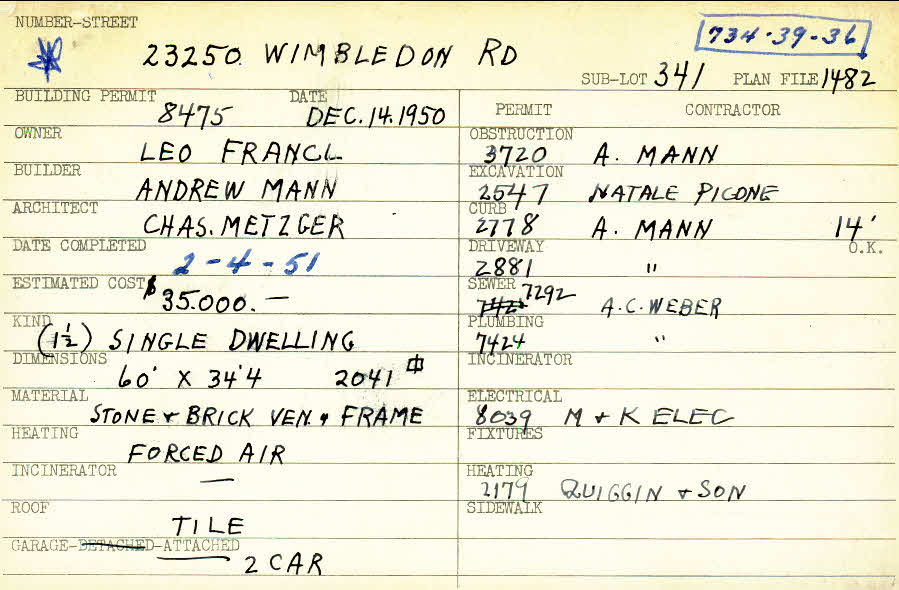 NUMBER-STREET
23250 WIMBLEDON RD
734-39-36
SUB-LOT 341 PLAN FILE 1482
BUILDING PERMIT 8475 DATE DEC. 14. 1950
PERMIT CONTRACTOR
OWNER LEO FRANCL
OBSTRUCTION 3720 A. MANN
BUILDER ANDREW MANN
EXCAVATION 2547 NATALE PICONE
ARCHITECT CHAS. METZGER
CURB 2778 A. MANN 14' O.K.
DATE COMPLETED 2-4-51
DRIVEWAY 2881 "
ESTIMATED COST $35.000.—
SEWER 7292 A.C. WEBER
KIND (1½) SINGLE DWELLING
PLUMBING 7424 "
DIMENSIONS 60' X 34'4 2041
INCINERATOR
MATERIAL STONE & BRICK VEN. & FRAME
ELECTRICAL 8039 M & K ELEC
HEATING FORCED AIR
FIXTURES
INCINERATOR —
HEATING 2179 QUIGGIN & SON
ROOF TILE
SIDEWALK
GARAGE-DETACHED-ATTACHED 2 CAR